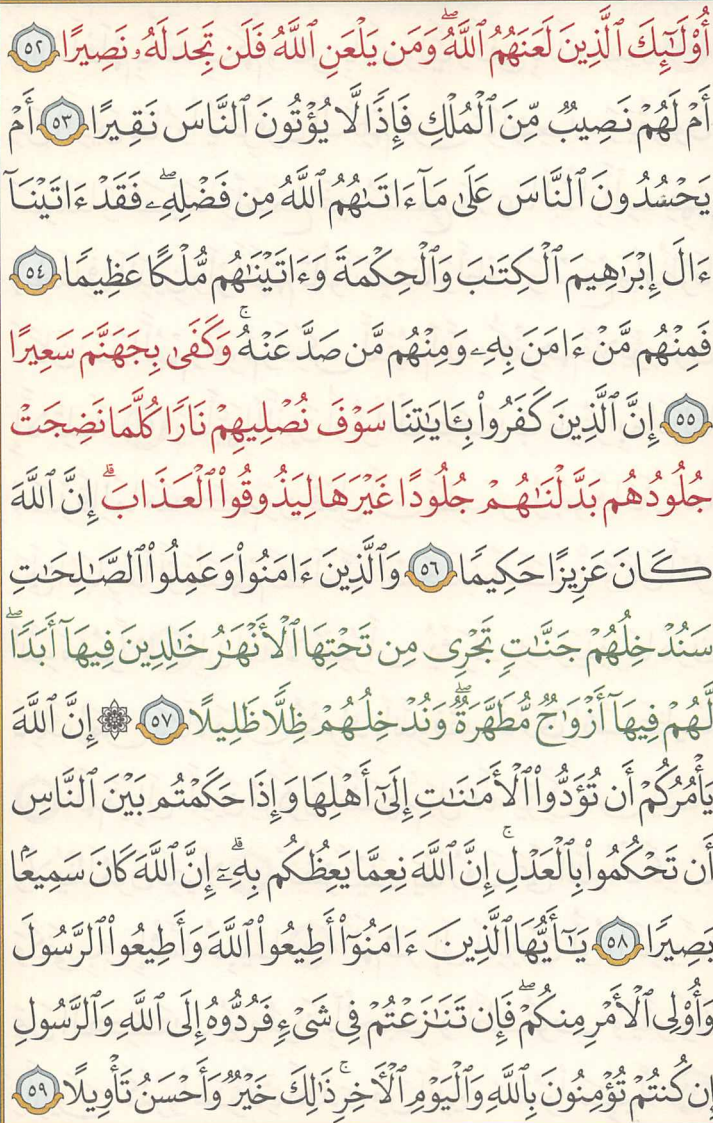 أُوْلَٰٓئِكَ ٱلَّذِينَ لَعَنَهُمُ ٱللَّهُۖ وَمَن يَلْعَنِ ٱللَّهُ فَلَن تَجِدَ لَهُۥ نَصِيرًا ٥٢
أَمْ لَهُمْ نَصِيبٌ مِّنَ ٱلْمُلْكِ فَإِذًا لَّا يُؤْتُونَ ٱلنَّاسَ نَقِيرًا ٥٣ أَمْ
يَحْسُدُونَ ٱلنَّاسَ عَلَىٰ مَآ ءَاتَىٰهُمُ ٱللَّهُ مِن فَضْلِهِۦۖ فَقَدْ ءَاتَيْنَآ
ءَالَ إِبْرَٰهِيمَ ٱلْكِتَٰبَ وَٱلْحِكْمَةَ وَءَاتَيْنَٰهُم مُّلْكًا عَظِيمًا ٥٤
فَمِنْهُم مَّنْ ءَامَنَ بِهِۦ وَمِنْهُم مَّن صَدَّ عَنْهُۚ وَكَفَىٰ بِجَهَنَّمَ سَعِيرًا
٥٥ إِنَّ ٱلَّذِينَ كَفَرُواْ بِـَٔايَٰتِنَا سَوْفَ نُصْلِيهِمْ نَارًا كُلَّمَا نَضِجَتْ
جُلُودُهُم بَدَّلْنَٰهُمْ جُلُودًا غَيْرَهَا لِيَذُوقُواْ ٱلْعَذَابَۗ إِنَّ ٱللَّهَ
كَانَ عَزِيزًا حَكِيمًا ٥٦ وَٱلَّذِينَ ءَامَنُواْ وَعَمِلُواْ ٱلصَّٰلِحَٰتِ
سَنُدْخِلُهُمْ جَنَّٰتٍ تَجْرِى مِن تَحْتِهَا ٱلْأَنْهَٰرُ خَٰلِدِينَ فِيهَآ أَبَدًاۖ
لَّهُمْ فِيهَآ أَزْوَٰجٌ مُّطَهَّرَةٌۖ وَنُدْخِلُهُمْ ظِلًّا ظَلِيلًا ٥٧ ۞ إِنَّ ٱللَّهَ
يَأْمُرُكُمْ أَن تُؤَدُّواْ ٱلْأَمَٰنَٰتِ إِلَىٰٓ أَهْلِهَا وَإِذَا حَكَمْتُم بَيْنَ ٱلنَّاسِ
أَن تَحْكُمُواْ بِٱلْعَدْلِۚ إِنَّ ٱللَّهَ نِعِمَّا يَعِظُكُم بِهِۦٓۗ إِنَّ ٱللَّهَ كَانَ سَمِيعًۢا
بَصِيرًا ٥٨ يَٰٓأَيُّهَا ٱلَّذِينَ ءَامَنُوٓاْ أَطِيعُواْ ٱللَّهَ وَأَطِيعُواْ ٱلرَّسُولَ
وَأُوْلِى ٱلْأَمْرِ مِنكُمْۖ فَإِن تَنَٰزَعْتُمْ فِى شَىْءٍ فَرُدُّوهُ إِلَى ٱللَّهِ وَٱلرَّسُولِ
إِن كُنتُمْ تُؤْمِنُونَ بِٱللَّهِ وَٱلْيَوْمِ ٱلْءَاخِرِۚ ذَٰلِكَ خَيْرٌ وَأَحْسَنُ تَأْوِيلًا ٥٩